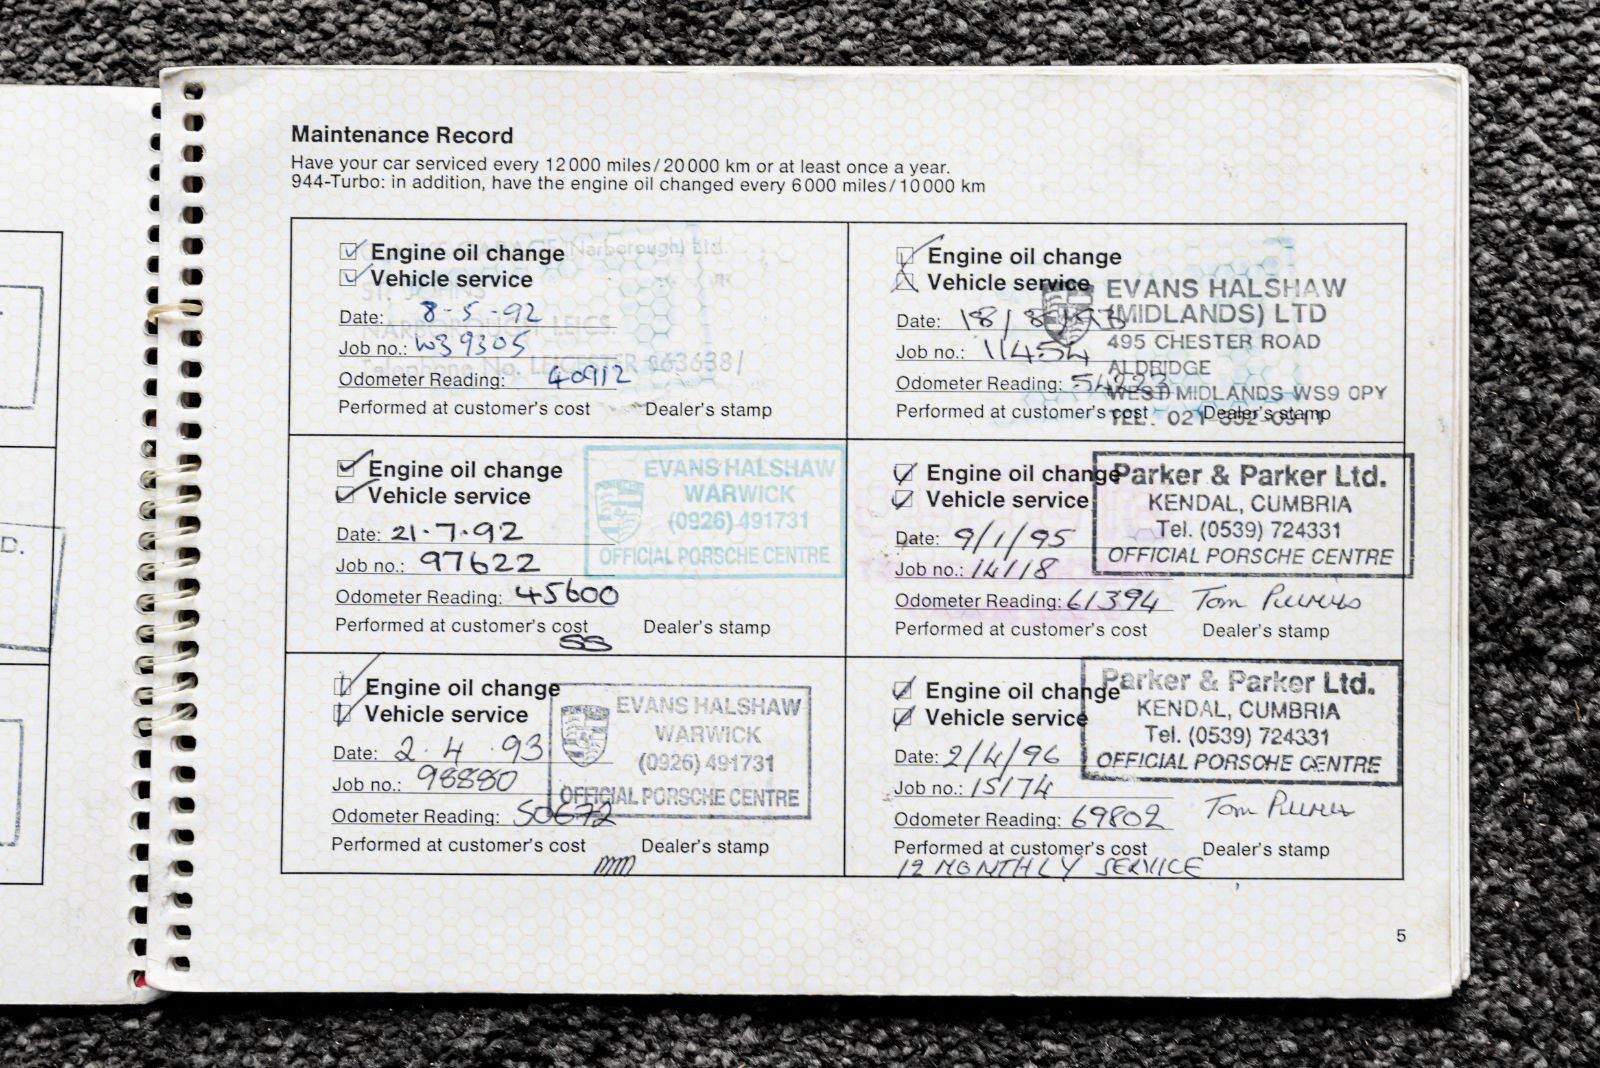 Maintenance Record
Have your car serviced every 12 000 miles / 20 000 km or at least once a year.
944-Turbo: in addition, have the engine oil changed every 6 000 miles / 10 000 km
Engine oil change
Vehicle service
Date: 8-5-92
Job no.: W39305
Odometer Reading: 40912
Performed at customer's cost Dealer's stamp
(Narborough) Ltd.
ST. JOHNS
NARBOROUGH LEICS
Telephone No. LEICESTER 863638/
Engine oil change
Vehicle service
Date: 21.7.92
Job no.: 97622
Odometer Reading: 45600
Performed at customer's cost Dealer's stamp
SS
EVANS HALSHAW
WARWICK
(0926) 491731
OFFICIAL PORSCHE CENTRE
Engine oil change
Vehicle service
Date: 2.4.93
Job no.: 98880
Odometer Reading: 50672
Performed at customer's cost Dealer's stamp
EVANS HALSHAW
WARWICK
(0926) 491731
OFFICIAL PORSCHE CENTRE
Engine oil change
Vehicle service
Date: 18/8/93
Job no.: 11454
Odometer Reading:
Performed at customer's cost Dealer's stamp
EVANS HALSHAW
(MIDLANDS) LTD
495 CHESTER ROAD
ALDRIDGE
WEST MIDLANDS WS9 0PY
TEL: 021
Engine oil change
Vehicle service
Date: 9/1/95
Job no.: 14118
Odometer Reading: 61394
Performed at customer's cost Dealer's stamp
Parker & Parker Ltd.
KENDAL, CUMBRIA
Tel. (0539) 724331
OFFICIAL PORSCHE CENTRE
Tom
Engine oil change
Vehicle service
Date: 2/4/96
Job no.: 15174
Odometer Reading: 69802
Performed at customer's cost Dealer's stamp
12 MONTHLY SERVICE
Parker & Parker Ltd.
KENDAL, CUMBRIA
Tel. (0539) 724331
OFFICIAL PORSCHE CENTRE
Tom
5
D.